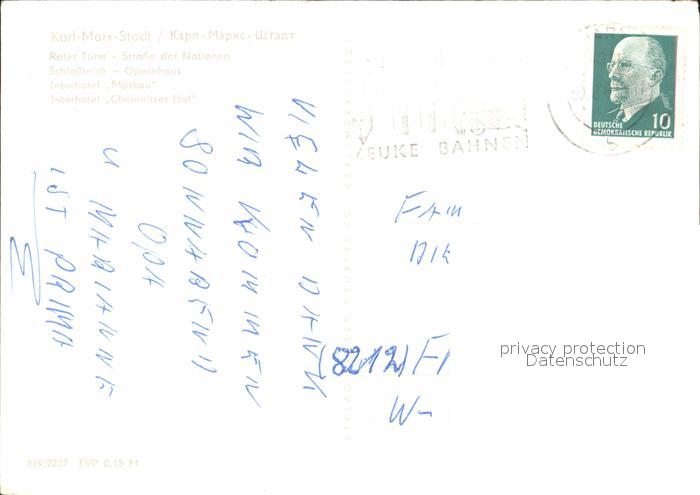 Karl-Marx-Stadt / Карл-Маркс-Штадт
Roter Turm · Straße der Nationen
Schloßteich – Opernhaus
Interhotel „Moskau"
Interhotel „Chemnitzer Hof"
VIELEN DANK
WIR KOMMEN
SONNABEND
OPA
u MARIANNE
IST PRIMA
ZEUKE BAHNEN
DEUTSCHE
DEMOKRATISCHE REPUBLIK
10
(8212) F
W
privacy protection
Datenschutz
669/2227 EVP 0,15 M